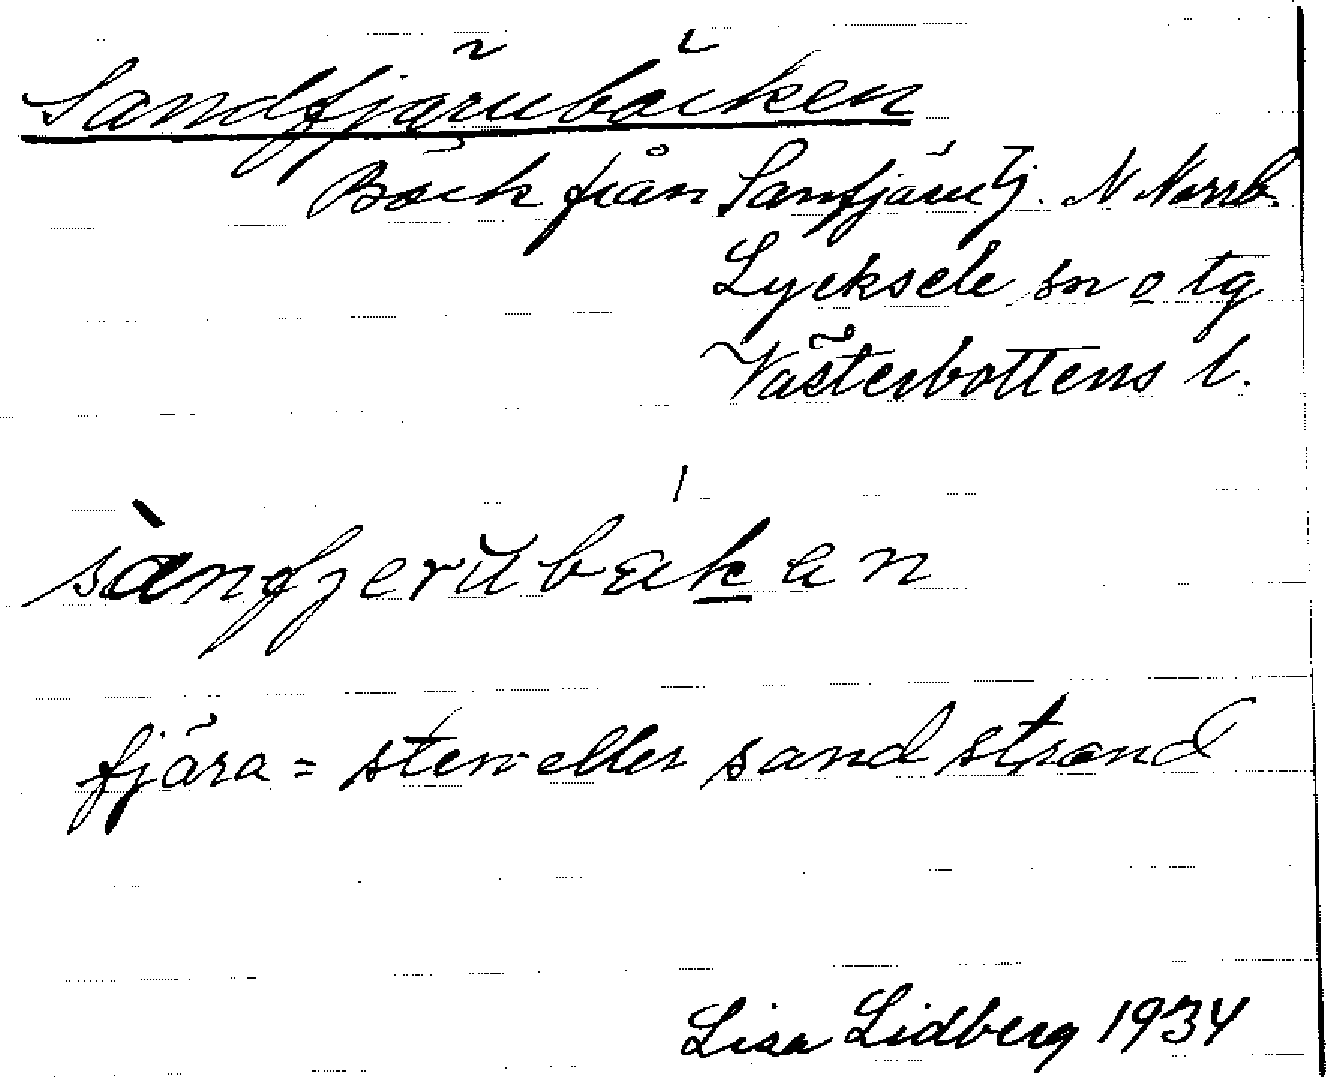 Sandfjärubäcken
Bäck från Sanfjärutj. N Norrb.
Lycksele sn o tg
Västerbottens l.
sànfjerŭbäkan
fjära = sten eller sandstrand
Lisa Lidberg 1934